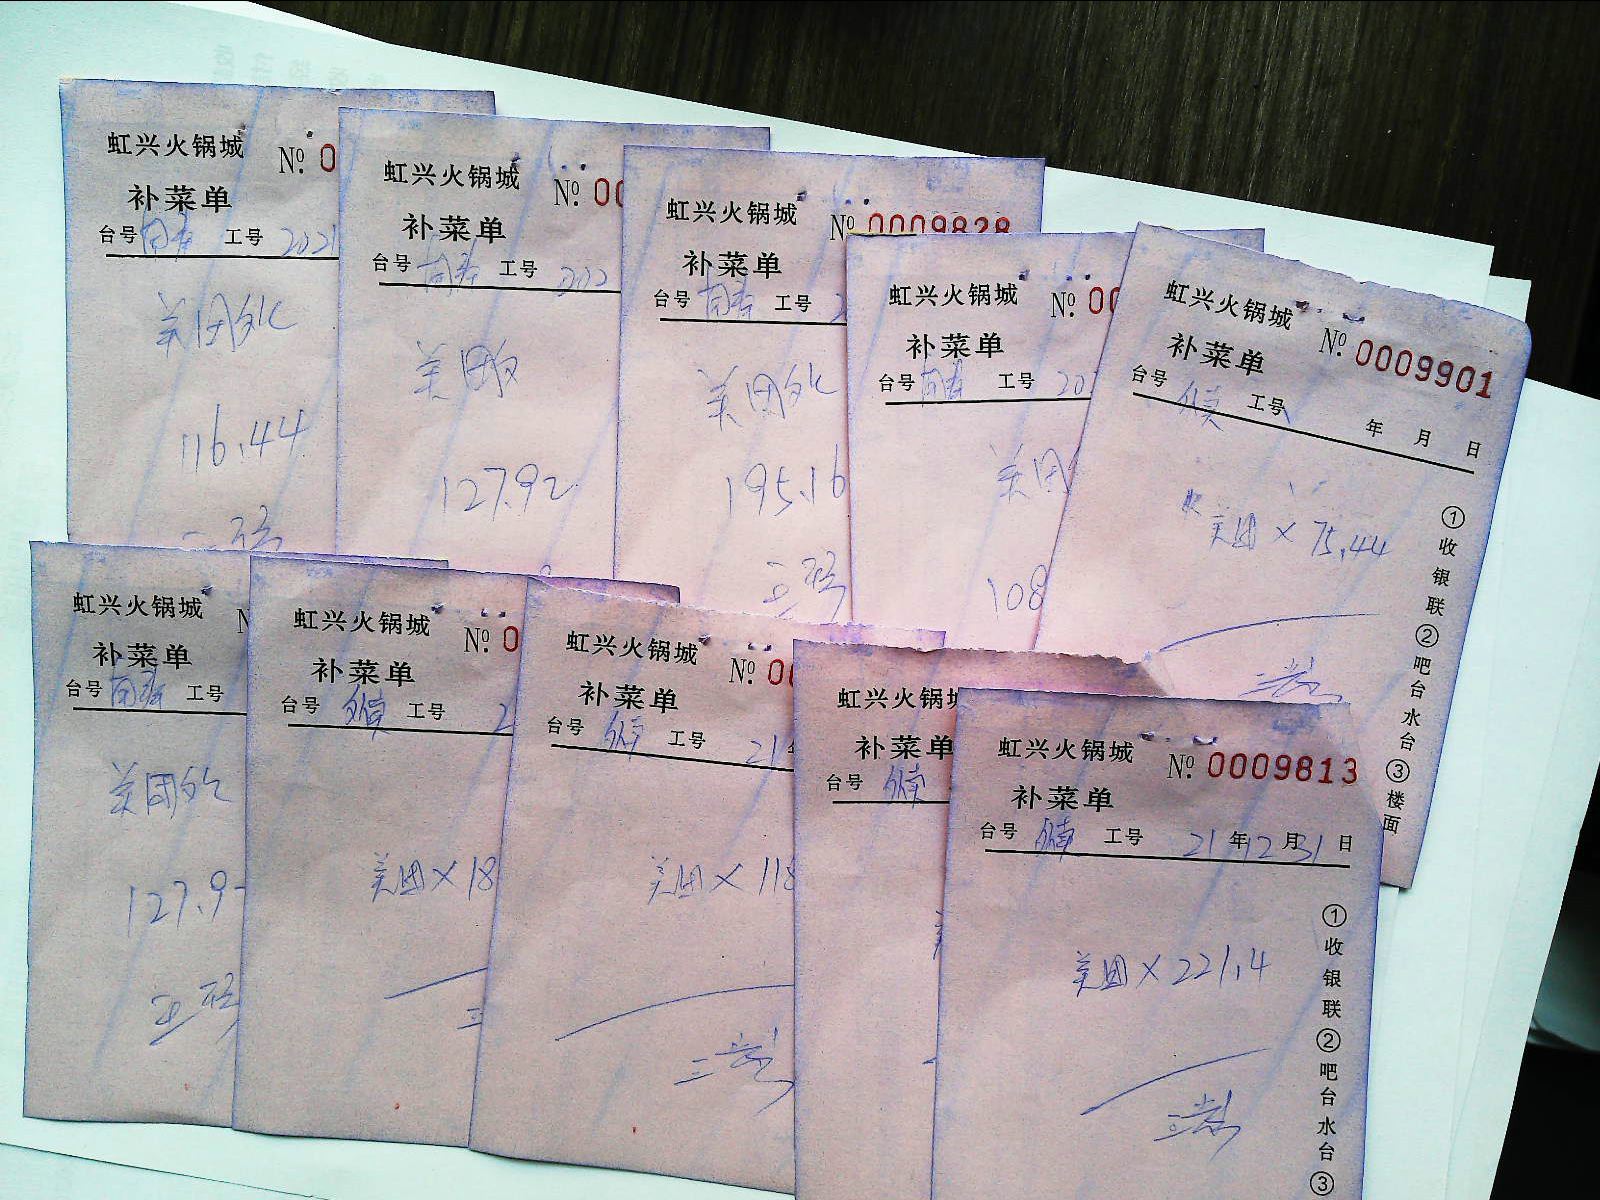 虹兴火锅城 No. 0
补菜单
台号 工号 2021
美团外
116.44
虹兴火锅城 No. 00
补菜单
台号 工号 202
美团
127.92
虹兴火锅城 No. 0009828
补菜单
台号 工号 2
美团外
195.16
虹兴火锅城 No. 00
补菜单
台号 工号 202
美团
108
虹兴火锅城 No. 0009901
补菜单
台号 工号 年 月 日
美团 × 75.44
①收银联②吧台水台③楼面
虹兴火锅城 N
补菜单
台号 工号
美团外
127.9
虹兴火锅城 No. 0
补菜单
台号 工号 2
美团 × 18
虹兴火锅城 No. 00
补菜单
台号 工号 21
美团 × 118
虹兴火锅城
补菜单
台号
虹兴火锅城 No. 0009813
补菜单
台号 工号 21年12月31日
美团 × 221.4
①收银联②吧台水台③